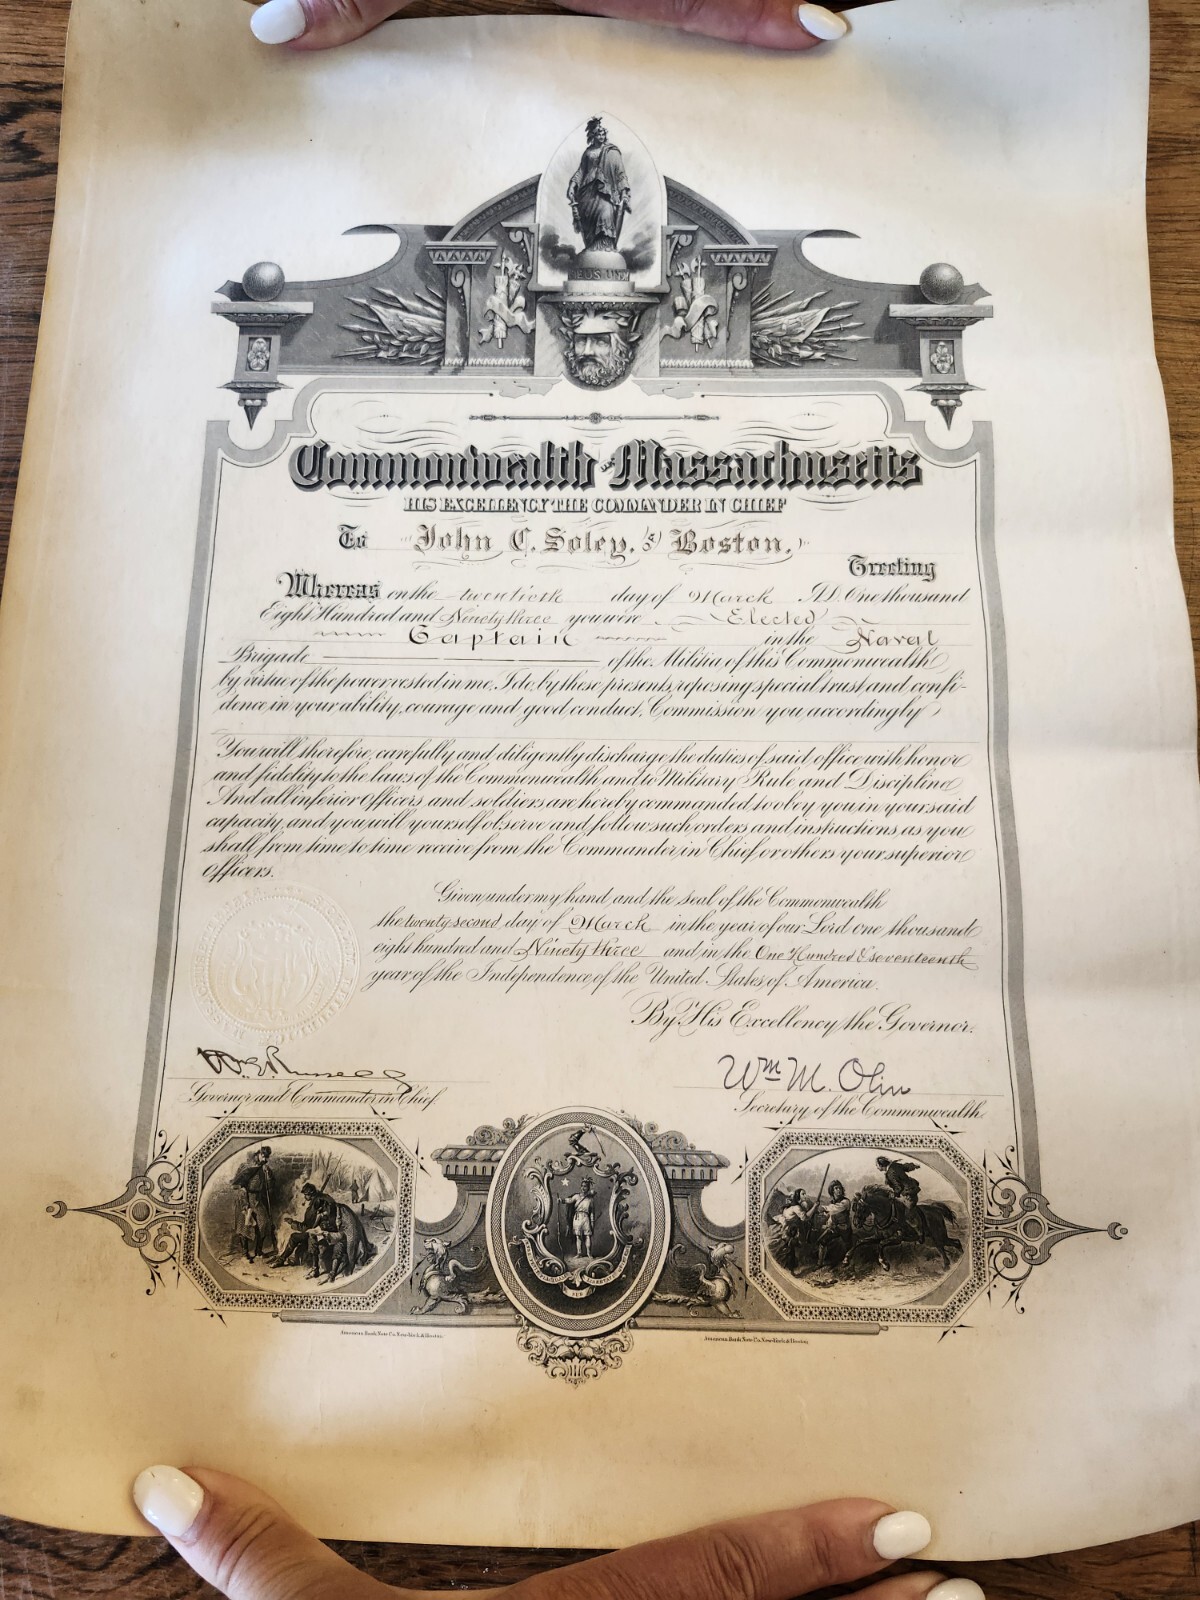 Commonwealth of Massachusetts
HIS EXCELLENCY THE COMMANDER IN CHIEF
To John C. Soley, of Boston,
Greeting
Whereas on the twentieth day of March A.D. One thousand
Eight Hundred and Ninety three you were Elected
Captain in the Naval
Brigade of the Militia of this Commonwealth
by virtue of the power vested in me, I do by these presents, reposing special trust and confi-
dence in your ability, courage and good conduct, Commission you accordingly
You will therefore, carefully and diligently discharge the duties of said office with honor
and fidelity to the laws of the Commonwealth and to Military Rule and Discipline
And all inferior Officers and soldiers are hereby commanded to obey you in your said
capacity, and you will yourself observe and follow such orders and instructions as you
shall from time to time receive from the Commander in Chief or others your superior
Officers.
Given under my hand and the seal of the Commonwealth
the twenty second day of March in the year of our Lord one thousand
eight hundred and Ninety three and in the One Hundred & seventeenth
year of the Independence of the United States of America.
By His Excellency the Governor.
Wm E Russell
Wm M. Olin
Governor and Commander in Chief
Secretary of the Commonwealth.
American Bank Note Co. New-York & Boston.
American Bank Note Co. New-York & Boston.